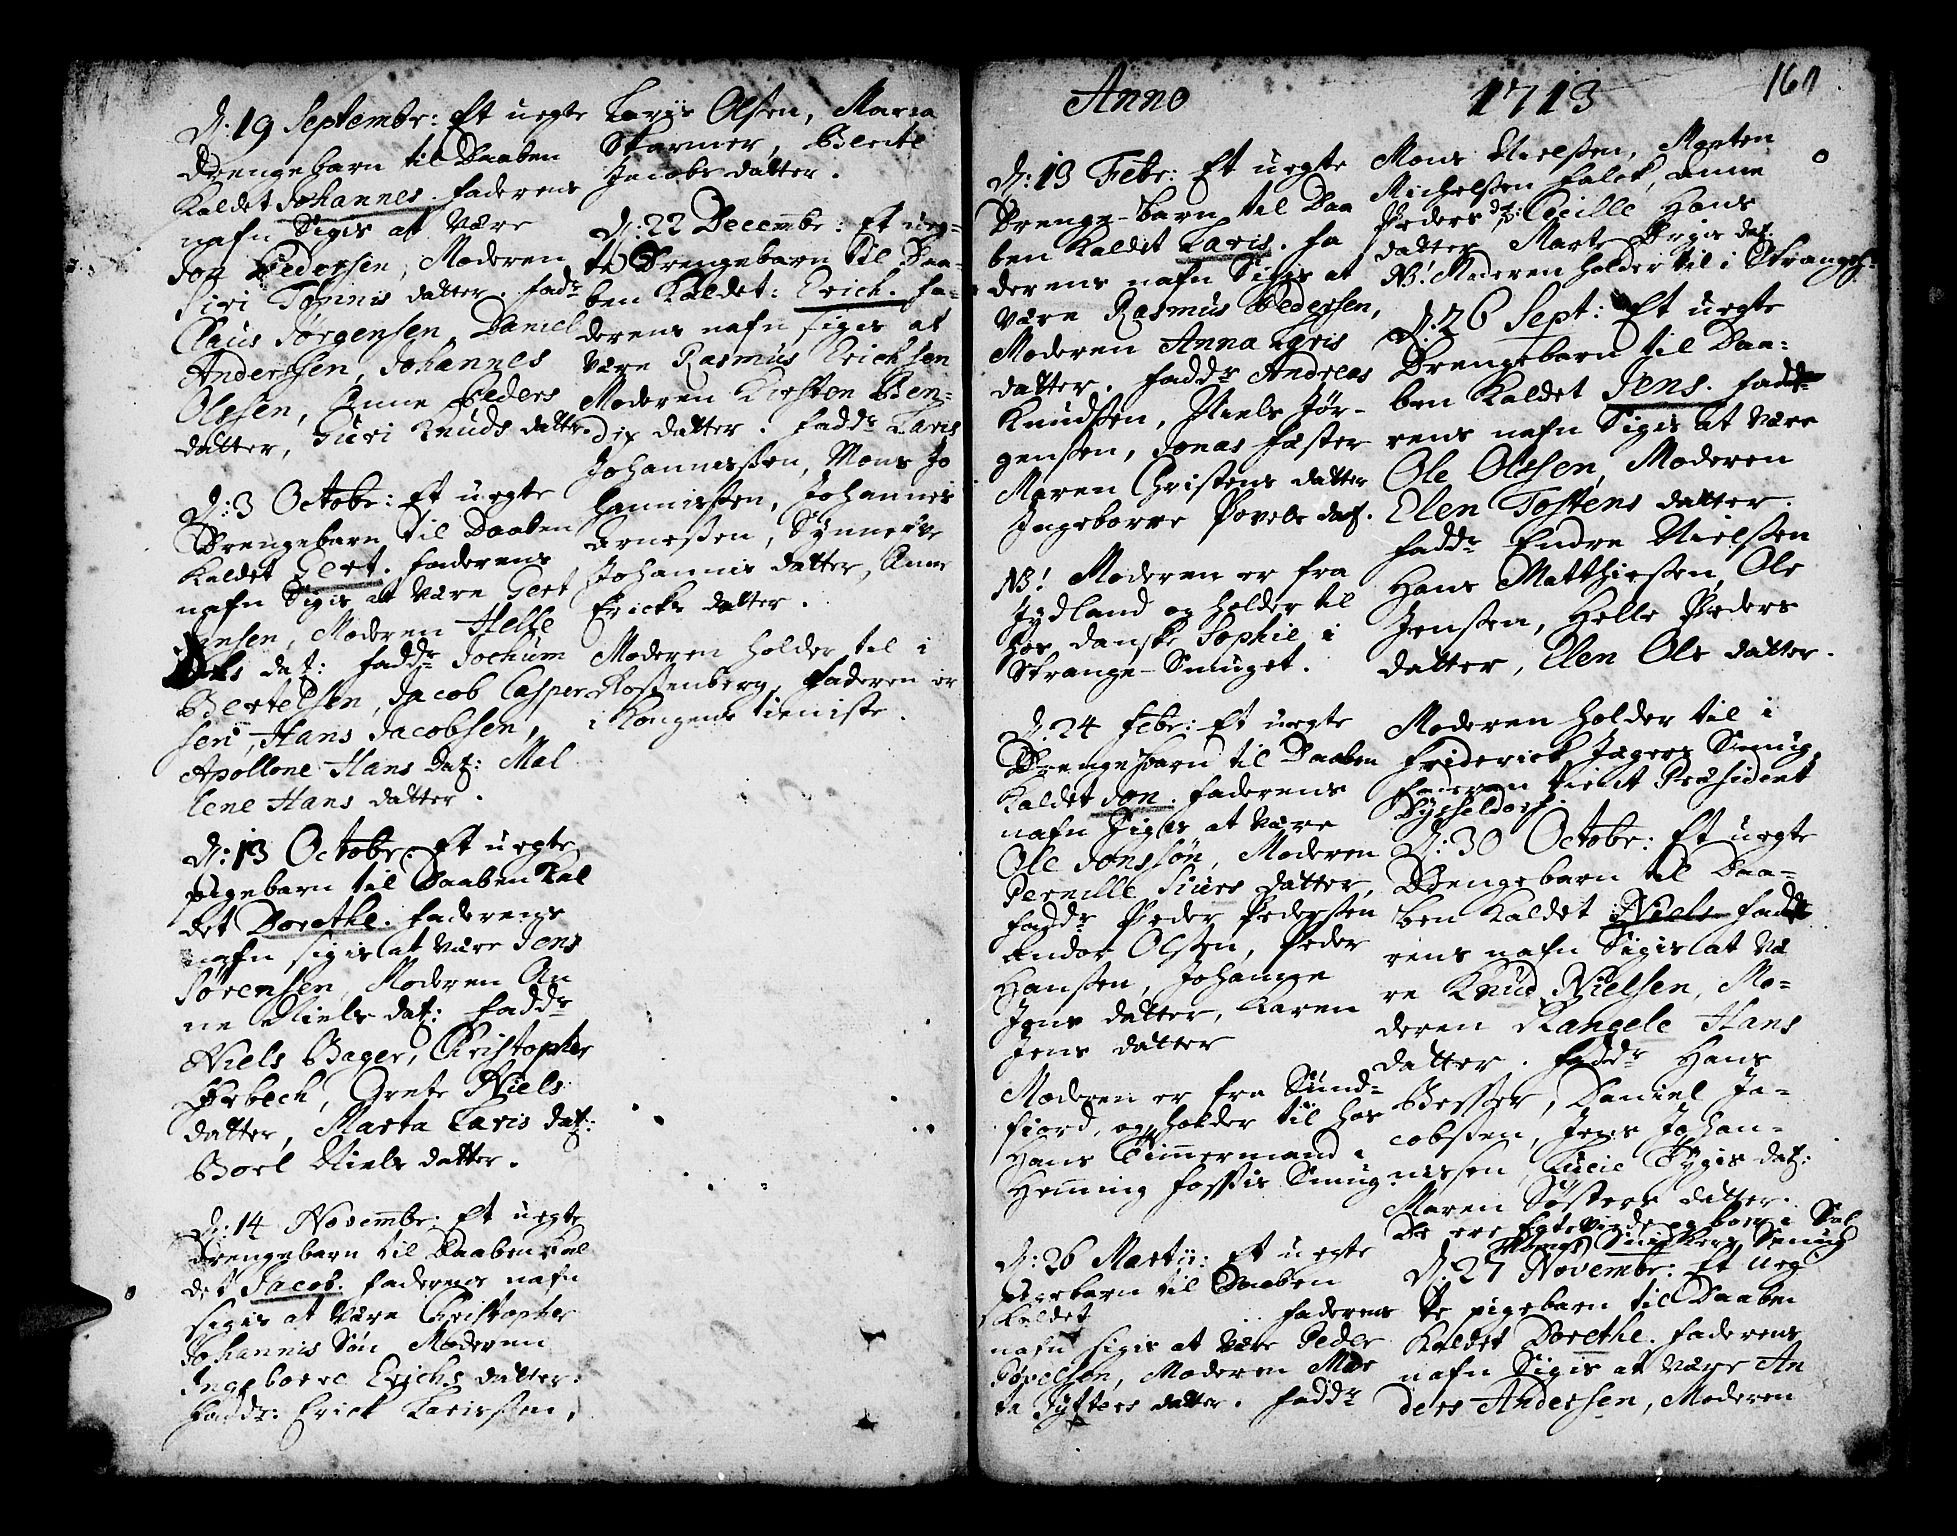 D: 19 Septembr: Et uegte
Drengebarn til Daaben
Kaldet Johannes. faderens
nafn Sigis at være
Jon Pedersen, Moderen
Siri Tønnis datter. fadr
Claus Jørgensen, Daniel
Anderssen, Johannes
Olssen, Anne Peders
datter, Guri Knuds datter.
D: 3 Octobr: Et uegte
Drengebarn til Daaben
Kaldet Gert. faderens
nafn Sigis at være Gert
Jensen, Moderen Helle
dat: faddr Jochum
Bertelsen, Jacob Casper
sen, Hans Jacobsen,
Apollone Hans dat: Mal
lene Hans datter.
D: 13 Octobr. Et uegte
pigebarn til Daaben Kal
det Dorethe. faderens
nafn sigis at være Jens
Sørensen, Moderen An
ne Niels dat: faddr
Niels Bager, Christopher
Grete Niels
datter, Marta Laris dat:
Boel Niels datter.
D: 14 Novembr: Et uegte
Drengebarn til Daaben Kal
det Jacob. faderens nafn
sigis at være Christopher
Johannis Søn Moderen
Ingeborre Erichs datter.
faddr: Erick Larissen,
Laris Olsen, Maria
Starmer, Berite
Jacobs datter.
D: 22 Decembr: Et ueg-
te Drengebarn til Daa-
ben Kaldet: Erich. fa-
derens nafn sigis at
være Rasmus Erichsen
Moderen Kirsten Ben-
dix datter. faddr Laris
Johannessen, Mons Jo
hannissen, Johannes
Arnessen, Synneve
Johannis datter, Anne
Ericks datter.
Moderen holder til i
Rossenberg, faderen er
i Kongens tieniste.
Anno 1713
160
D: 13 Febr: Et uegte
Drenge-barn til Daa
ben Kaldet Laris. fa
derens nafn Sigis at
være Rasmus Pedersen,
Moderen Anna Laris
datter. faddr Andreas
Knudsen, Niels Jør-
gensen, Jonas fæster
Maren Christens datter
Ingeborre Povels dat.
NB! Moderen er fra
Jydland og holder til
hos danske Sophie i
Strange-Smuget.
D: 24 febr: Et uegte
Drengebarn til Daaben
Kaldet Jon. faderens
nafn Sigis at være
Ole Jonssøn, Moderen
Pernille Siurs datter,
faddr Peder Pedersen
Andor Olsen, Peder
Hansen, Johanne
Jens datter, Karen
Jens datter
Moderen er fra Sund-
fiord, og holder til hos
Hans Timmermand i
Heming fossis Smug.
D: 26 Martii: Et uegte
Pigebarn til Daaben
Kaldet faderens
nafn sigis at være Peder
Povelsen, Moderen Mar
ta datter. faddr
Mons Nielsen, Morten
Michelsen falck, Anne
Peders dat: Cecille Hans
datter, Marte dat:
NB! Moderen holder til i
D: 26 Sept: Et uegte
Drengebarn til Daa-
ben Kaldet Jens. fade
rens nafn Sigis at være
Ole Olssen, Moderen
Elen Tostens datter.
faddr Endre Nielssen
Hans Matthiessen, Ole
Jenssen, Helle Peders
datter, Elen Ols datter.
Moderen holder til i
friderick Jagers Smug,
faderen tient Præsident
Dysseldorf.
D: 30 Octobr: Et uegte
Drengebarn til Daa-
ben Kaldet Niels fade
rens nafn Sigis at væ
re Knud Nielsen, Mo-
deren Rangele Hans
datter. faddr Hans
Besser, Daniel Ja-
cobsen, Jens Johan-
nessen, Lucie dat:
Maren Søfrens datter.
De ere Egteviede og boer i
Smug
D: 27 Novembr: Et ueg
te pigebarn til Daaben
Kaldet Dorethe. faderens
nafn Sigis at være An
ders Andersen, Moderen